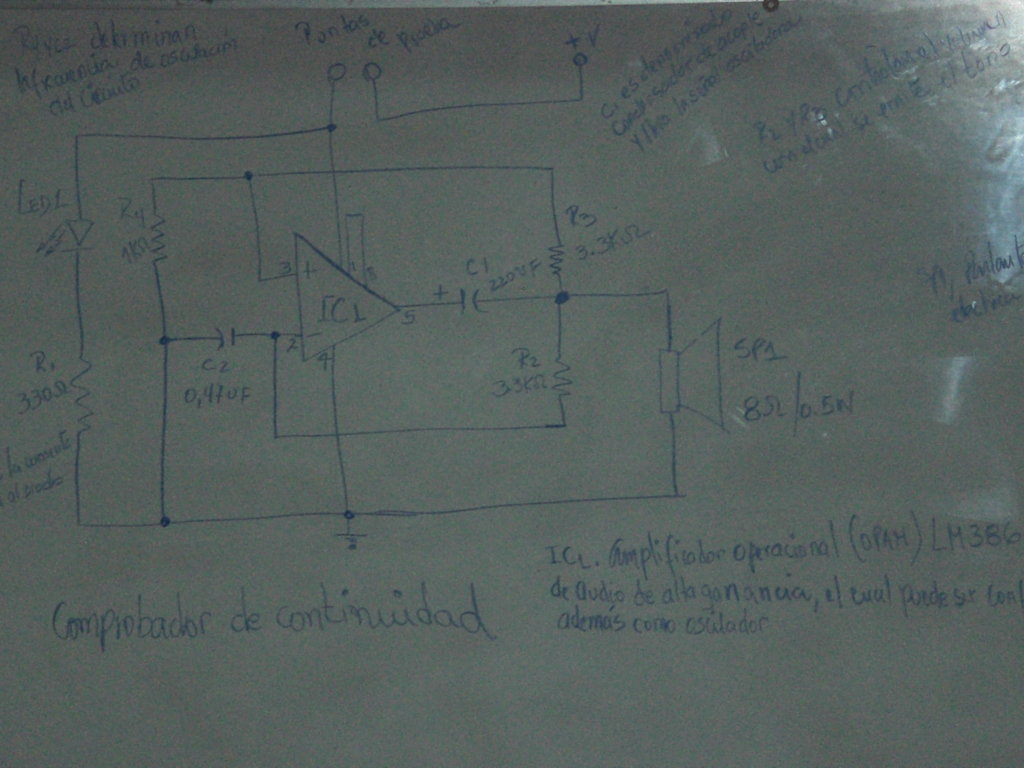 R4 y C2 determinan
la frecuencia de oscilación
del circuito
Puntas
de prueba
+ V
C1 es denominado
condensador de acople
R2 y R3 controlan el volumen
con el cual se emite el tono
LED1
R4
1KΩ
R3
3.3KΩ
3
+
1
8
IC1
+
C1
220uF
5
2
-
4
C2
0,47uF
R1
330Ω
R2
33KΩ
SP1
8Ω/0.5W
la corriente
IC1. Amplificador operacional (OPAM) LM386
de audio de alta ganancia, el cual puede ser
además como oscilador
Comprobador de continuidad